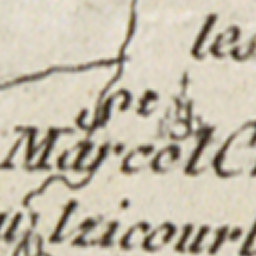 les
St
Marcel C
Izicourt